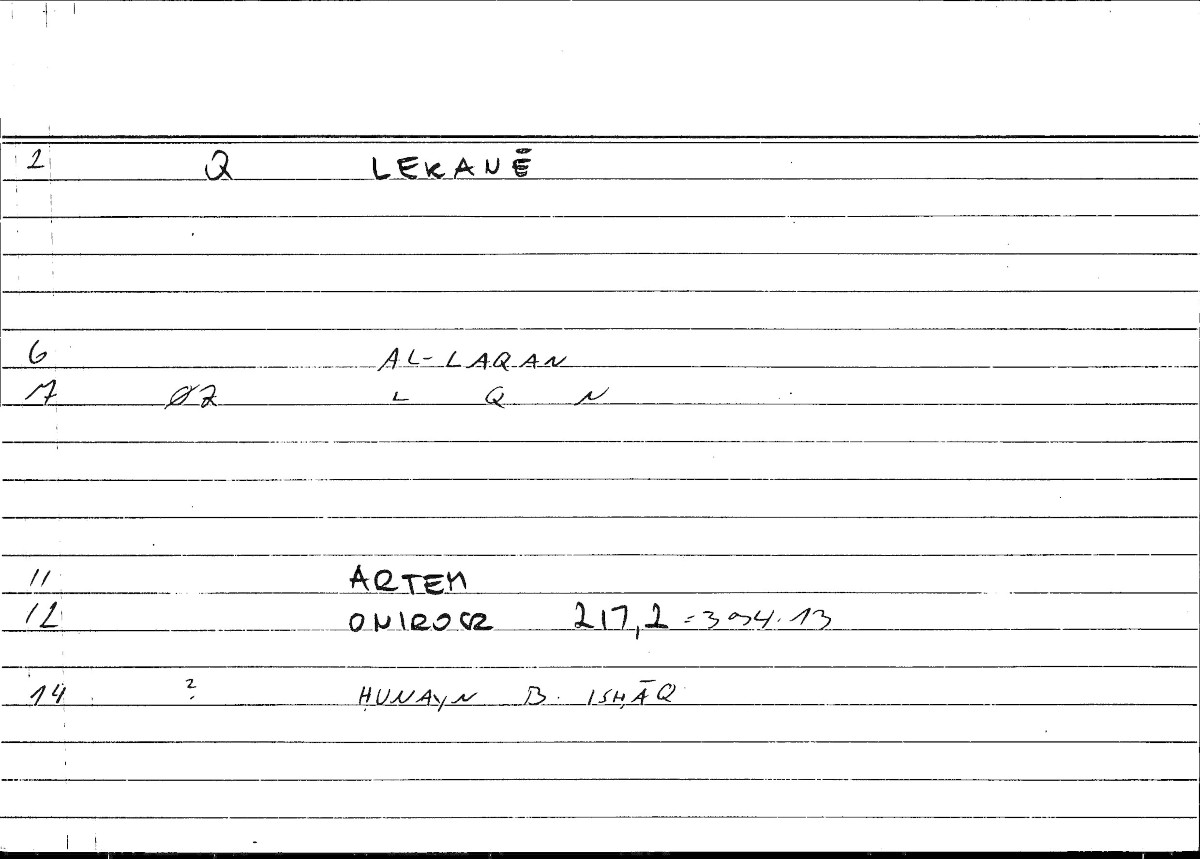 2 Q LEKANĒ
6 AL-LAQAN
7 Ø2 L Q N
11 ARTEM
12 ONIROCR 217,2 = 394.13
14 ? ḤUNAYN B. ISḤĀQ